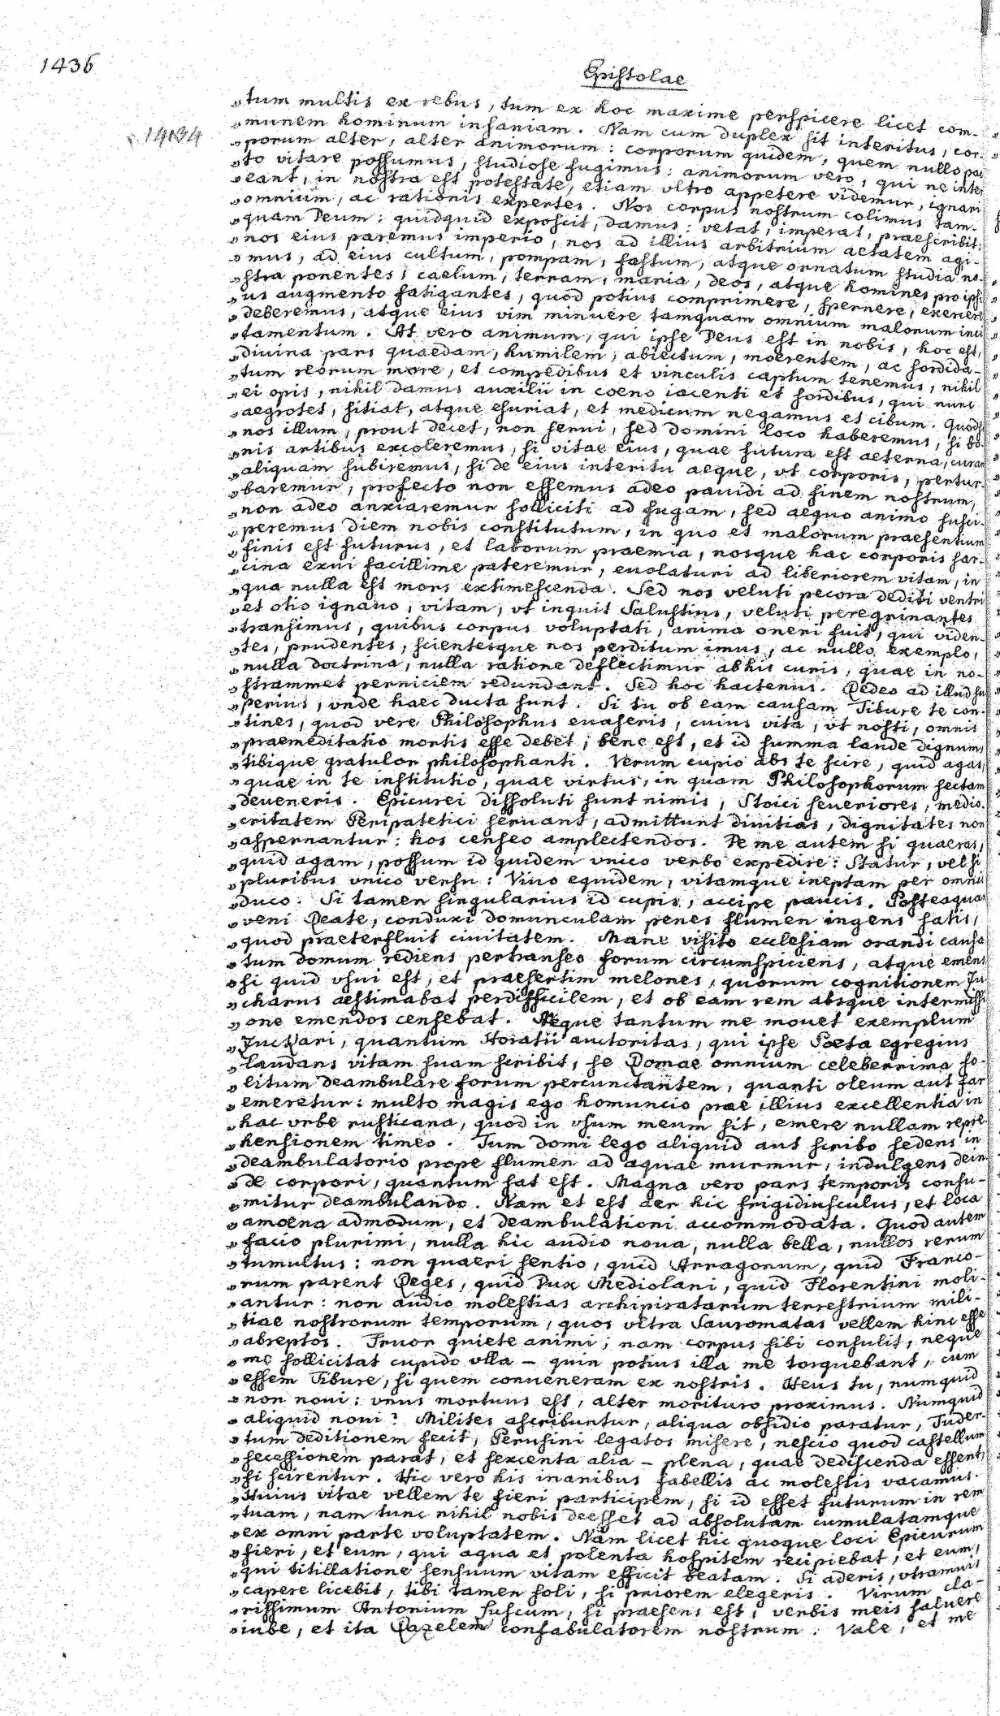 1436
Epistolae
1434
„tum multis ex rebus, tum ex hoc maxime perspicere licet com-
„munem hominum insaniam. Nam cum duplex sit interitus, cor-
„porum alter, alter animorum: corporum quidem, quem nullo pac
„to vitare possumus, studiose fugimus: animorum vero, qui ne inter
„eant, in nostra est potestate, etiam vltro appetere videmur, ignari
„omnium, ac rationis expertes. Nos corpus nostrum colimus tam-
„quam Deum: quidquid exposcit, damus: vetat, imperat, praescribit:
„nos eius paremus imperio, nos ad illius arbitrium aetatem agi-
„mus, ad eius cultum, pompam, fastum, atque ornatum studia no-
„stra ponentes; caelum, terram, maria, deos, atque homines pro ipsi
„us augmento fatigantes, quod potius comprimere, spernere, exerere
„deberemus, atque eius vim minuere tamquam omnium malorum inci
„tamentum. At vero animum, qui ipse Deus est in nobis, hoc est,
„divina pars quaedam, humilem, abiectum, moerentem, ac sordida-
„tum reorum more, et compedibus et vinculis captum tenemus, nihil
„ei opis, nihil damus auxilii in coeno iacenti et sordibus, qui nunc
„aegrotet, sitiat, atque esuriat, et medicum negamus et cibum. Quods
„nos illum, prout decet, non serui, sed domini loco haberemus, si bo
„nis artibus excoleremus, si vitae eius, quae futura est aeterna, curam
„aliquam subiremus, si de eius interitu aeque, vt corporis, pertur-
„baremur, profecto non essemus adeo pauidi ad finem nostrum,
„non adeo anxiaremur solliciti ad fugam, sed aequo animo susci-
„peremus diem nobis constitutum, in quo et malorum praesentium
„finis est futurus, et laborum praemia, nosque hac corporis sar-
„cina exui facillime pateremur, euolaturi ad liberiorem vitam, in
„qua nulla est mors extimescenda. Sed nos veluti pecora dediti ventri
„et otio ignauo, vitam, vt inquit Salustius, veluti peregrinantes
„transimus, quibus corpus voluptati, anima oneri fuit, qui viden-
„tes, prudentes, scientesque nos perditum imus, ac nullo exemplo,
„nulla doctrina, nulla ratione deflectimur ab his curis, quae in no-
„strammet perniciem redundant. Sed hoc hactenus. Redeo ad illud su
„perius, vnde haec ducta sunt. Si tu ob eam causam Tibure te con-
„tines, quod vere Philosophus euaseris, cuius vita, vt nosti, omnis
„praemeditatio mortis esse debet; bene est, et id summa laude dignum,
„tibique gratulor philosophanti. Verum cupio abs te scire, quid agas,
„quae in te institutio, quae virtus, in quam Philosophorum sectam
„deueneris. Epicurei dissoluti sunt nimis, Stoici seueriores, medio-
„critatem Peripatetici seruant, admittunt diuitias, dignitates non
„aspernantur: hos censeo amplectendos. De me autem si quaeras,
„quid agam, possum id quidem vnico verbo expedire: Statur, vel si
„pluribus vnico versu: Viuo equidem, vitamque ineptam per omnia
„duco. Si tamen singularius id cupis, accipe paucis. Posteaquam
„veni Reate, conduxi domunculam penes flumen ingens satis,
„quod praeterfluit ciuitatem. Mane visito ecclesiam orandi causa
„tum domum rediens pertranseo forum circumspiciens, atque emens
„si quid vsui est, et praesertim melones, quorum cognitionem Ju
„charus aestimabat perdifficilem, et ob eam rem absque intermissi
„one emendos censebat. Neque tantum me mouet exemplum
„Juchari, quantum Horatii auctoritas, qui ipse Poeta egregius
„laudans vitam suam scribit, se Romae omnium celeberrima so-
„litum deambulare forum percunctantem, quanti oleum aut far
„emeretur: multo magis ego homuncio prae illius excellentia in
„hac vrbe rusticana, quod in vsum meum sit, emere nullam repre
„hensionem timeo. Tum domi lego aliquid aut scribo sedens in
„deambulatorio prope flumen ad aquae murmur, indulgens dein
„de corpori, quantum sat est. Magna vero pars temporis consu-
„mitur deambulando. Nam et est aer hic frigidiusculus, et loca
„amoena admodum, et deambulationi accommodata. Quod autem
„facio plurimi, nulla hic audio noua, nulla bella, nullos rerum
„tumultus: non quaeri sentio, quid Arragonum, quid Franco-
„rum parent Reges, quid Dux Mediolani, quid Florentini moli-
„antur: non audio molestias archipiratarum terrestrium mili-
„tiae nostrorum temporum, quos vltra Sauromatas vellem hinc esse
„abreptos. Fruor quiete animi; nam corpus sibi consulit, neque
„me sollicitat cupido vlla – quin potius illa me torquebant, cum
„essem Tibure, si quem conueneram ex nostris. Heus tu, numquid
„non noui: vnus mortuus est, alter morituro proximus. Numquid
„aliquid noui? Milites ascribuntur, aliqua obsidio paratur, Tuder-
„tum deditionem fecit, Perusini legatos misere, nescio quod castellum
„secessionem parat, et sexcenta alia – plena, quae dediscenda essent,
„si scirentur. Hic vero his inanibus fabellis ac molestis vacamus.
„Huius vitae vellem te fieri participem, si id esset futurum in rem
„tuam, nam tunc nihil nobis deesset ad absolutam cumulatamque
„ex omni parte voluptatem. Nam licet hic quoque loci Epicurum
„fieri, et eum, qui aqua et polenta hospitem recipiebat, et eum,
„qui titillatione sensuum vitam efficit beatam. Si aderis, vtramuis
„capere licebit, tibi tamen soli, si priorem elegeris. Virum cla-
„rissimum Antonium fuscum, si praesens est, verbis meis saluere
„iube, et ita Razelem confabulatorem nostrum. Vale, et me